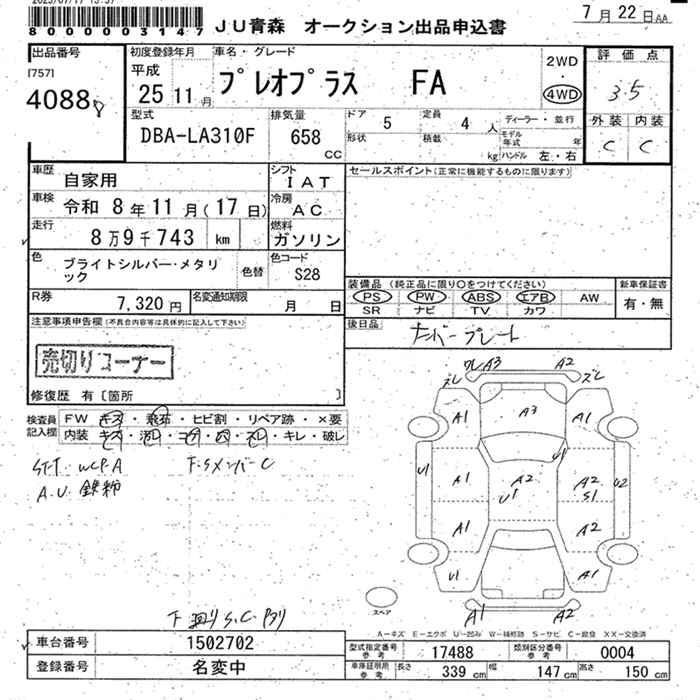 8 0 0 0 0 0 3 1 4 7
JU青森 オークション出品申込書
7月22日AA
出品番号
[757]
4088
初度登録年月
平成
25 11 月
車名・グレード
プレオプラス FA
2WD
・
4WD
評価点
3.5
外装 内装
C C
型式
DBA-LA310F
排気量
658
CC
ドア 5 定員 4 人
形状 積載 kg
ディーラー・並行
モデル年式 年
ハンドル 左・右
車歴 自家用
シフト IAT
車検 令和 8年11月(17日)
冷房 AC
走行 8万9千743 km
燃料 ガソリン
色 ブライトシルバー・メタリック
色替
色コード S28
R券 7,320円
名変通知期限 月 日
セールスポイント(正常に機能するものに限ります)
装備品 (純正品に限り○をつけてください)
新車保証書
PS PW ABS エアB AW
SR ナビ TV カワ
有・無
後日品 ナンバープレート
注意事項申告欄(不具合内容等は具体的に記入して下さい)
売切りコーナー
修復歴 有〔箇所 〕
検査員記入欄
FW キズ・飛石・ヒビ割・リペア跡・×要
内装 キズ・汚れ・コゲ・穴・スレ・キレ・破レ
A.U 鉄粉
A3 A2
ズレ ズレ
A1 A3 A1
U1 A1 A2 U1 A2 S1 U2
A1 A2
U1 A1
A1 A2
スペア
下廻りS.C
A-キズ E-エクボ U-凹み W-補修跡 S-サビ C-腐食 XX-交換済
車台番号 1502702
登録番号 名変中
型式指定番号参考 17488
類別区分番号参考 0004
車庫証明用参考 長さ 339 cm 幅 147 cm 高さ 150 cm